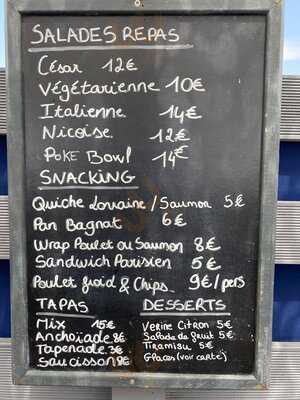 SALADES REPAS
César 12€
Végétarienne 10€
Italienne 14€
Nicoise 12€
POKE BOWL 14€
SNACKING
Quiche Lorraine / Saumon 5€
Pan Bagnat 6€
Wrap Poulet ou Saumon 8€
Sandwich Parisien 5€
Poulet froid & Chips 9€/pers
TAPAS
Mix 15€
Anchoïade 8€
Tapenade 3€
Saucisson 8€
DESSERTS
Verine Citron 5€
Salade de fruit 5€
Tiramisu 5€
Glaces (voir carte)